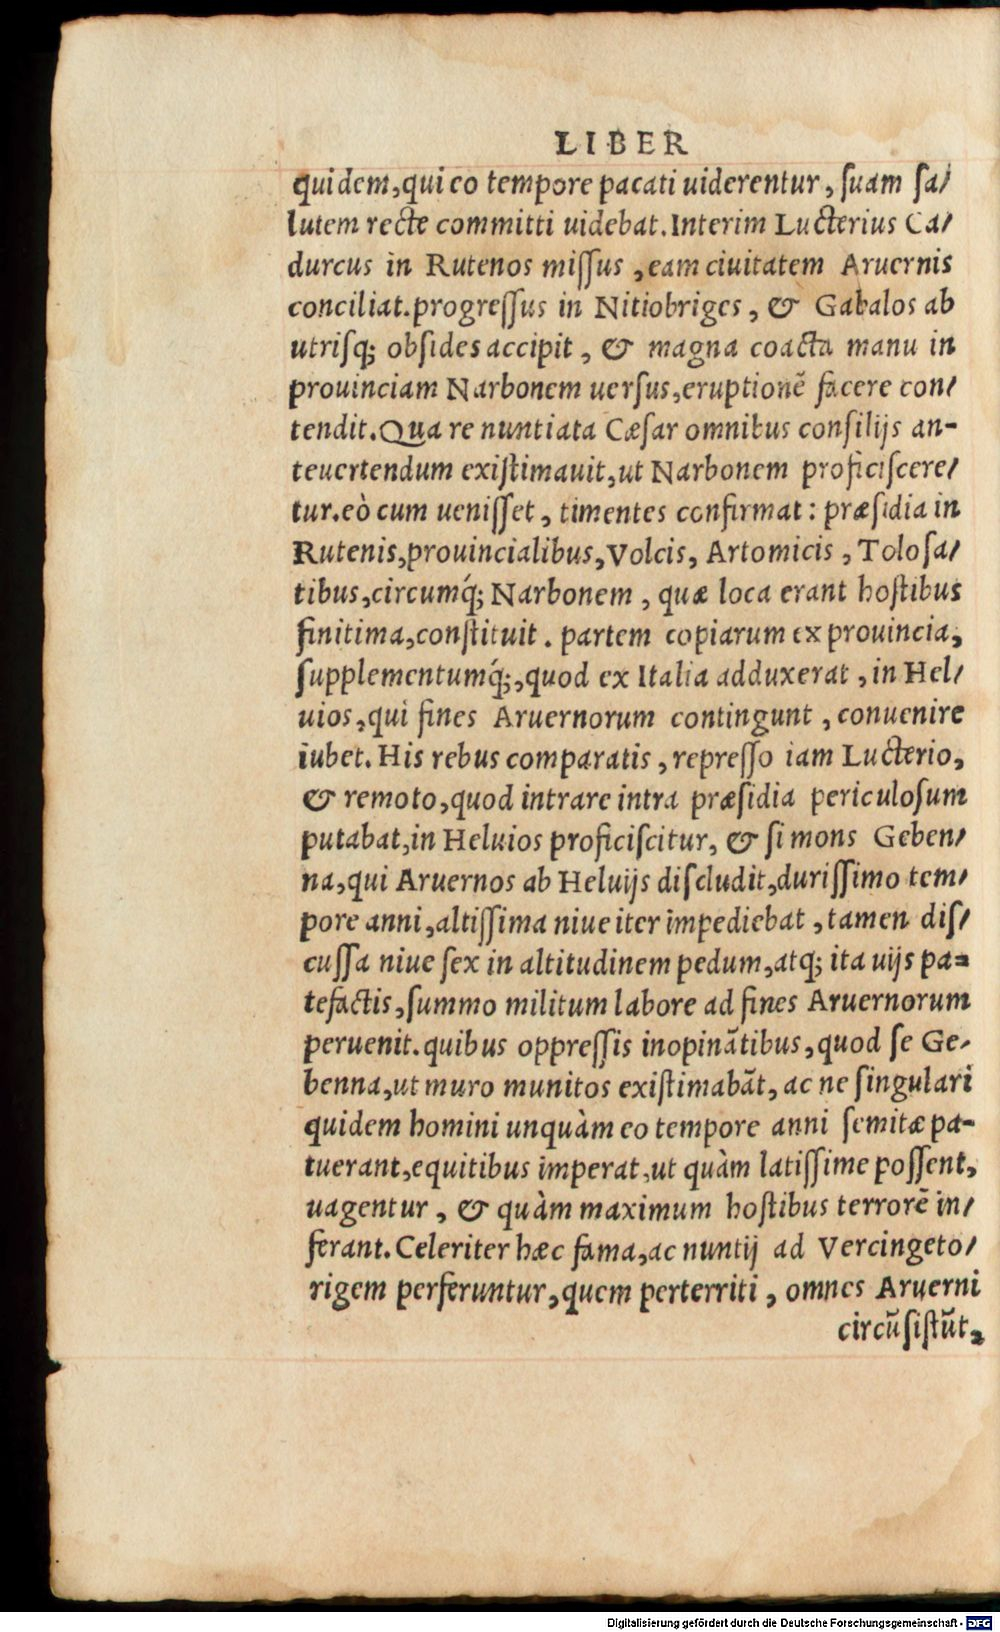 LIBER
quidem,qui eo tempore pacati uiderentur, ſuam ſa/
lutem recte committi uidebat.Interim Lucterius Ca/
durcus in Rutenos miſſus ,eam ciuitatem Aruernis
conciliat.progreſſus in Nitiobriges, & Gabalos ab
utriſq; obſides accipit, & magna coacta manu in
prouinciam Narbonem uerſus,eruptionē facere con/
tendit.Qua re nuntiata Cæſar omnibus conſilijs an-
teuertendum exiſtimauit,ut Narbonem proficiſcere/
tur.eò cum ueniſſet, timentes confirmat: præſidia in
Rutenis,prouincialibus,Volcis, Artomicis, Toloſa/
tibus,circumq́; Narbonem, quæ loca erant hoſtibus
finitima,conſtituit. partem copiarum ex prouincia,
ſupplementumq́;,quod ex Italia adduxerat, in Hel/
uios,qui fines Aruernorum contingunt, conuenire
iubet. His rebus comparatis, repreſſo iam Lucterio,
& remoto,quod intrare intra præſidia periculoſum
putabat,in Heluios proficiſcitur, & ſi mons Geben/
na,qui Aruernos ab Heluijs diſcludit,duriſſimo tem/
pore anni,altiſſima niue iter impediebat, tamen diſ/
cuſſa niue ſex in altitudinem pedum,atq; ita uijs pa-
tefactis,ſummo militum labore ad fines Aruernorum
peruenit.quibus oppreſſis inopinātibus,quod ſe Ge-
benna,ut muro munitos exiſtimabāt, ac ne ſingulari
quidem homini unquàm eo tempore anni ſemitæ pa-
tuerant,equitibus imperat,ut quàm latiſſime poſſent,
uagentur, & quàm maximum hoſtibus terrorē in/
ferant.Celeriter hæc fama,ac nuntij ad Vercingeto/
rigem perferuntur,quem perterriti, omnes Aruerni
circūſiſtūt,
Digitalisierung gefördert durch die Deutsche Forschungsgemeinschaft - DFG